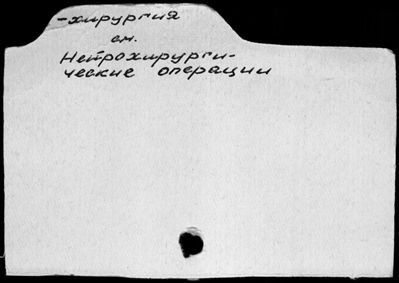 -хирургия
см.
Нейрохирурги-
ческие операции